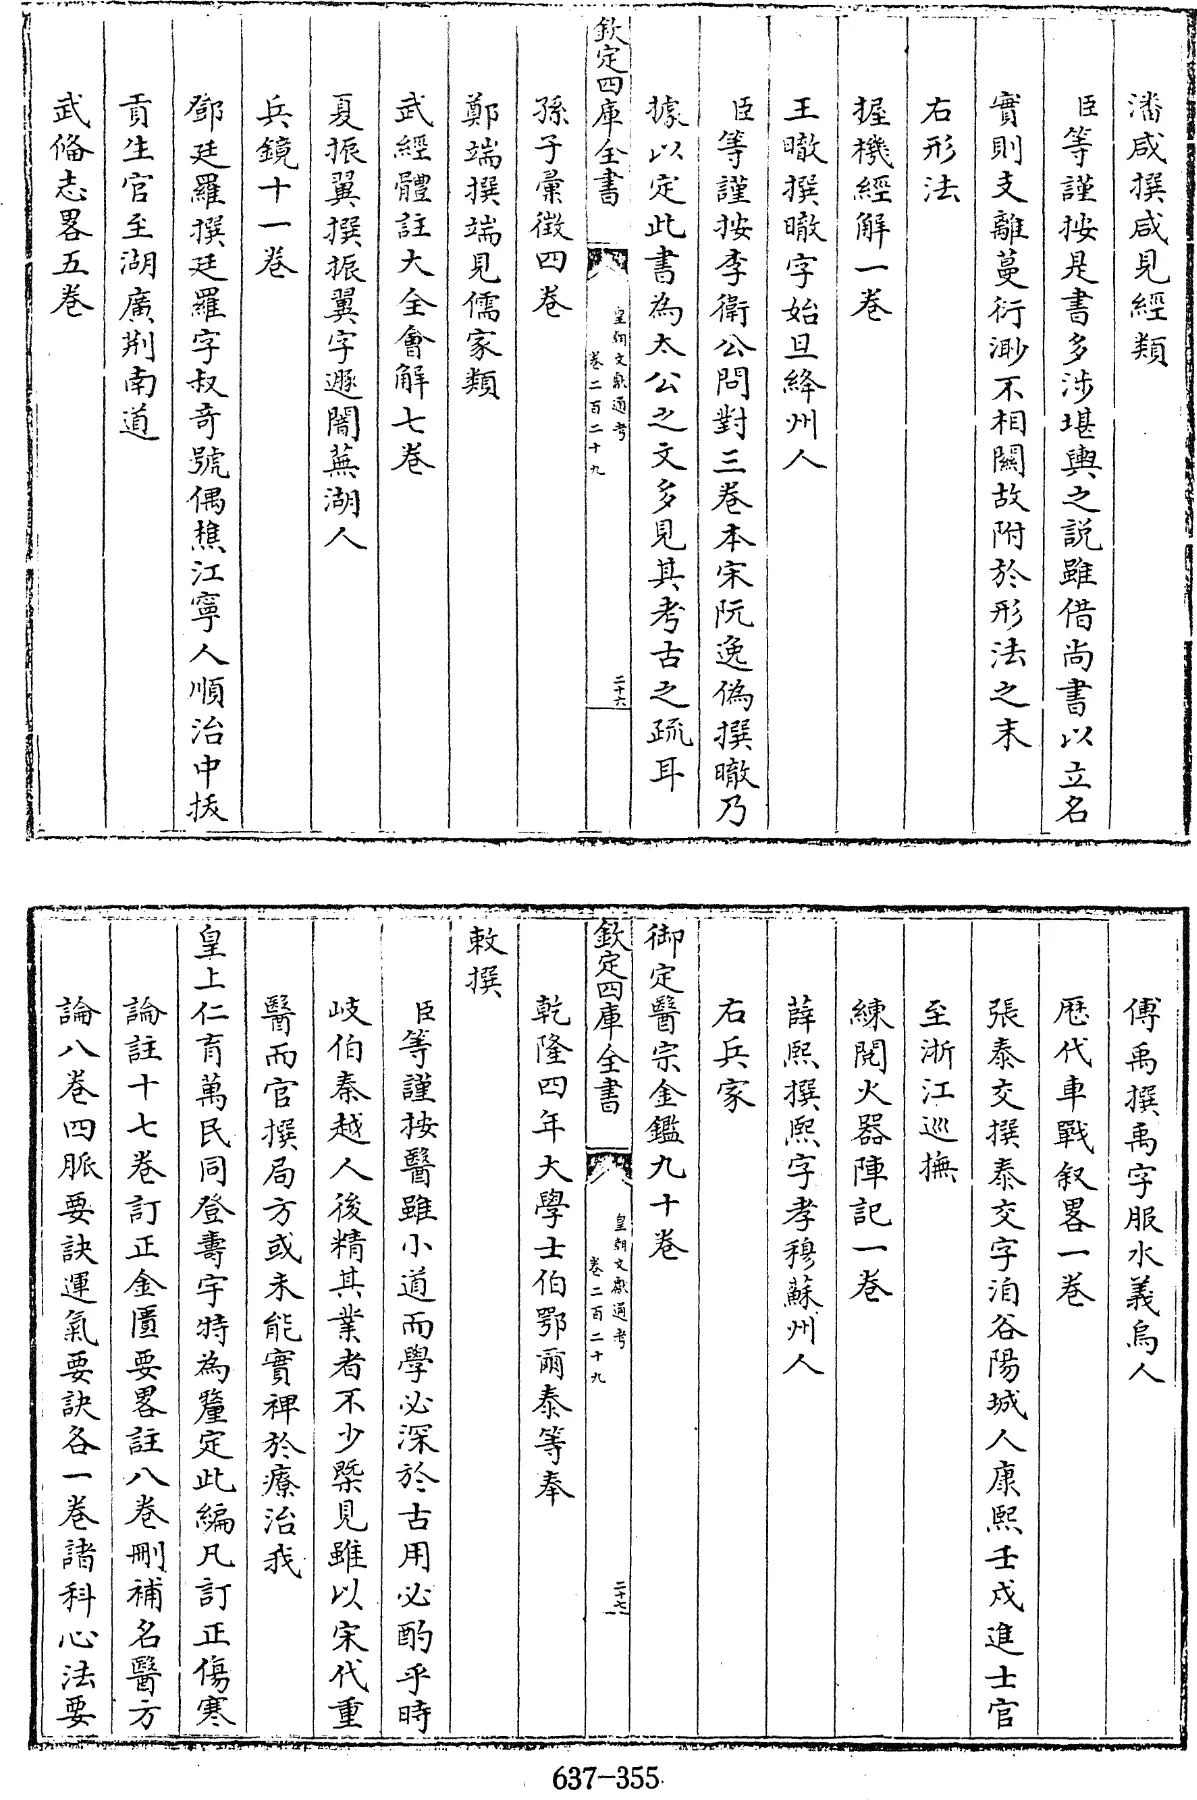 潘咸撰咸見經類
臣等謹按是書多涉堪輿之説雖借尚書以立名
實則支離蔓衍渺不相關故附於形法之末
右形法
握機經解一巻
王暾撰暾字始旦絳州人
臣等謹按李衛公問對三巻本宋阮逸偽撰暾乃
據以定此書為太公之文多見其考古之疏耳
欽定四庫全書
皇朝文獻通考
卷二百二十九
二十六
孫子彚徴四巻
鄭端撰端見儒家類
武經體註大全會解七巻
夏振翼撰振翼字遯闇蕪湖人
兵鏡十一巻
鄧廷羅撰廷羅字叔奇號偶樵江寧人順治中拔
貢生官至湖廣荆南道
武備志畧五巻
傅禹撰禹字服水義烏人
厯代車戰叙畧一巻
張泰交撰泰交字洎谷陽城人康熙壬戌進士官
至浙江巡撫
練閱火器陣記一巻
薛熙撰熙字孝穆蘇州人
右兵家
御定醫宗金鑑九十巻
欽定四庫全書
皇朝文獻通考
卷二百二十九
二十七
乾隆四年大學士伯鄂爾泰等奉
敕撰
臣等謹按醫雖小道而學必深於古用必酌乎時
岐伯秦越人後精其業者不少槩見雖以宋代重
醫而官撰局方或未能實裨於療治我
皇上仁育萬民同登壽宇特為釐定此編凡訂正傷寒
論註十七巻訂正金匱要畧註八巻刪補名醫方
論八巻四脈要訣運氣要訣各一巻諸科心法要
637-355